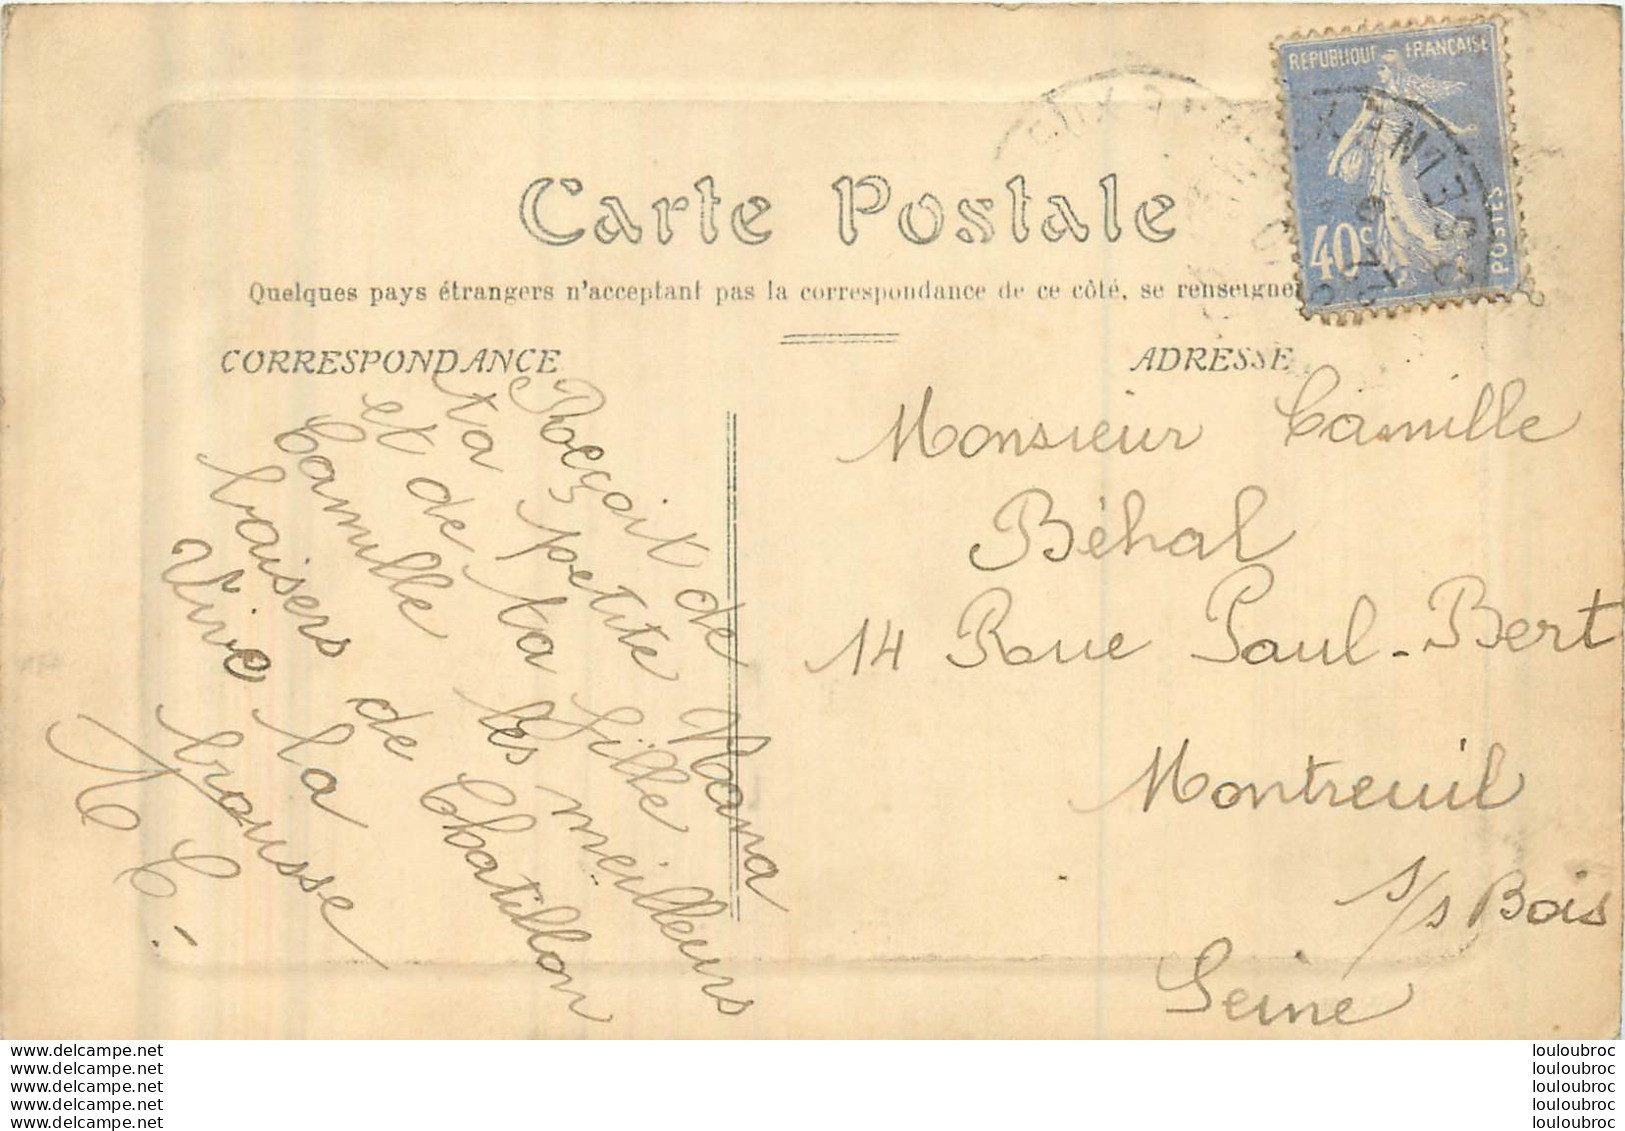 RÉPUBLIQUE FRANÇAISE
40c
POSTES
Carte Postale
Quelques pays étrangers n'acceptant pas la correspondance de ce côté, se renseigne
CORRESPONDANCE
ADRESSE
Reçoit de Mama
ta petite fille
et de ta les meilleurs
Camille
baisers de Chatillon
Vive la
brousse
Monsieur Camille
Béhal
14 Rue Paul-Bert
Montreuil
s/s Bois
Seine
www.delcampe.net
www.delcampe.net
www.delcampe.net
www.delcampe.net
www.delcampe.net
louloubroc
louloubroc
louloubroc
louloubroc
louloubroc